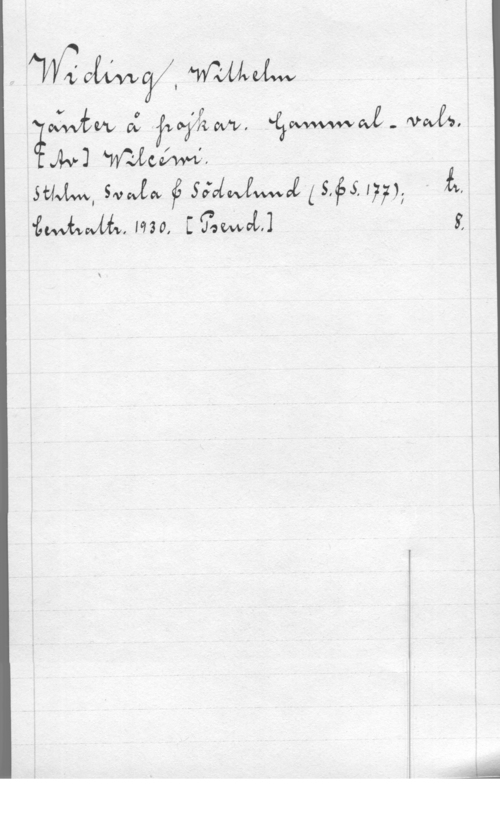 Widing, Wilhelm
Jänter å pojkar. Gammal-vals.
[Av] Wilcéwi.
Sthlm, Svala & Söderlund (S.&S. 177); tr.
Centraltr. 1930. [Pseud.] 8.